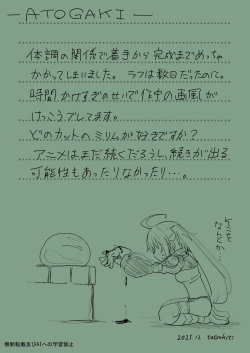 —ATOGAKI—
体調の関係で着手から完成までめっちゃ
かかってしまいました。ラフは数日だったのに。
時間かけすぎのせいで作中の画風が
けっこうブレてます。
どのカットのミリムが好きですか?
アニメはまだ続くだろうし、続きが出る
可能性もあったりなかったり…。
なんてか…
2025.12
無断転載及びAIへの学習禁止